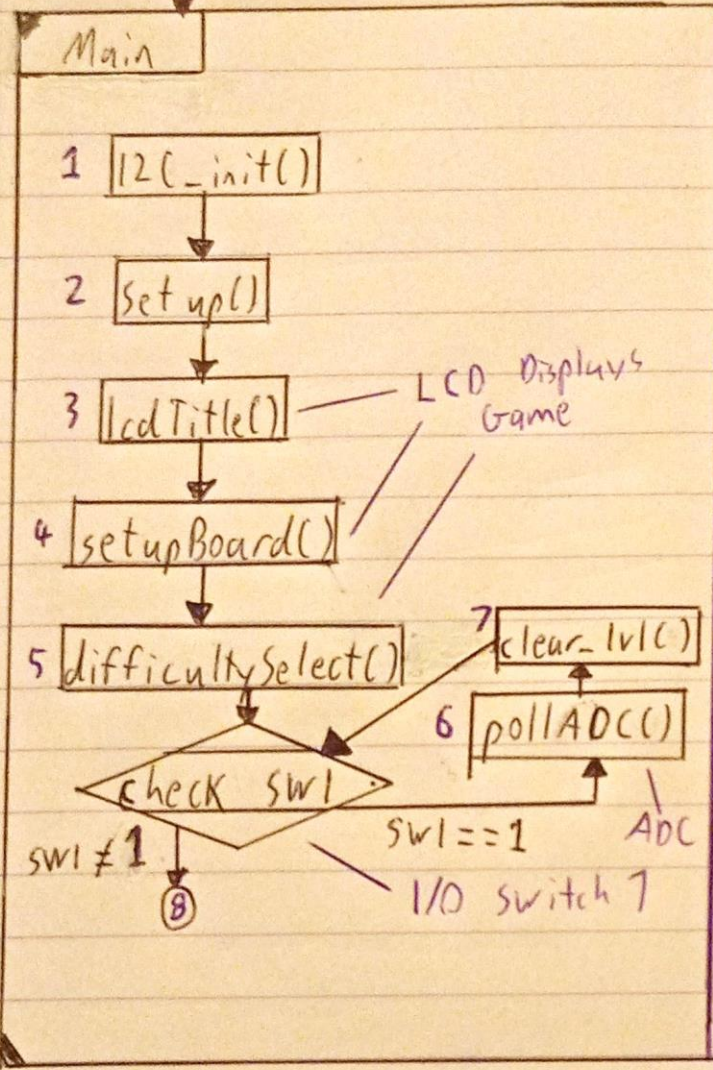 Main
1 I2C_init()
2 setup()
3 lcdTitle()
LCD Displays
Game
4 setupBoard()
7 clear_lvl()
5 difficultySelect()
6 pollADC()
check SW1
SW1 == 1
ADC
SW1 ≠ 1
I/O switch 1
8